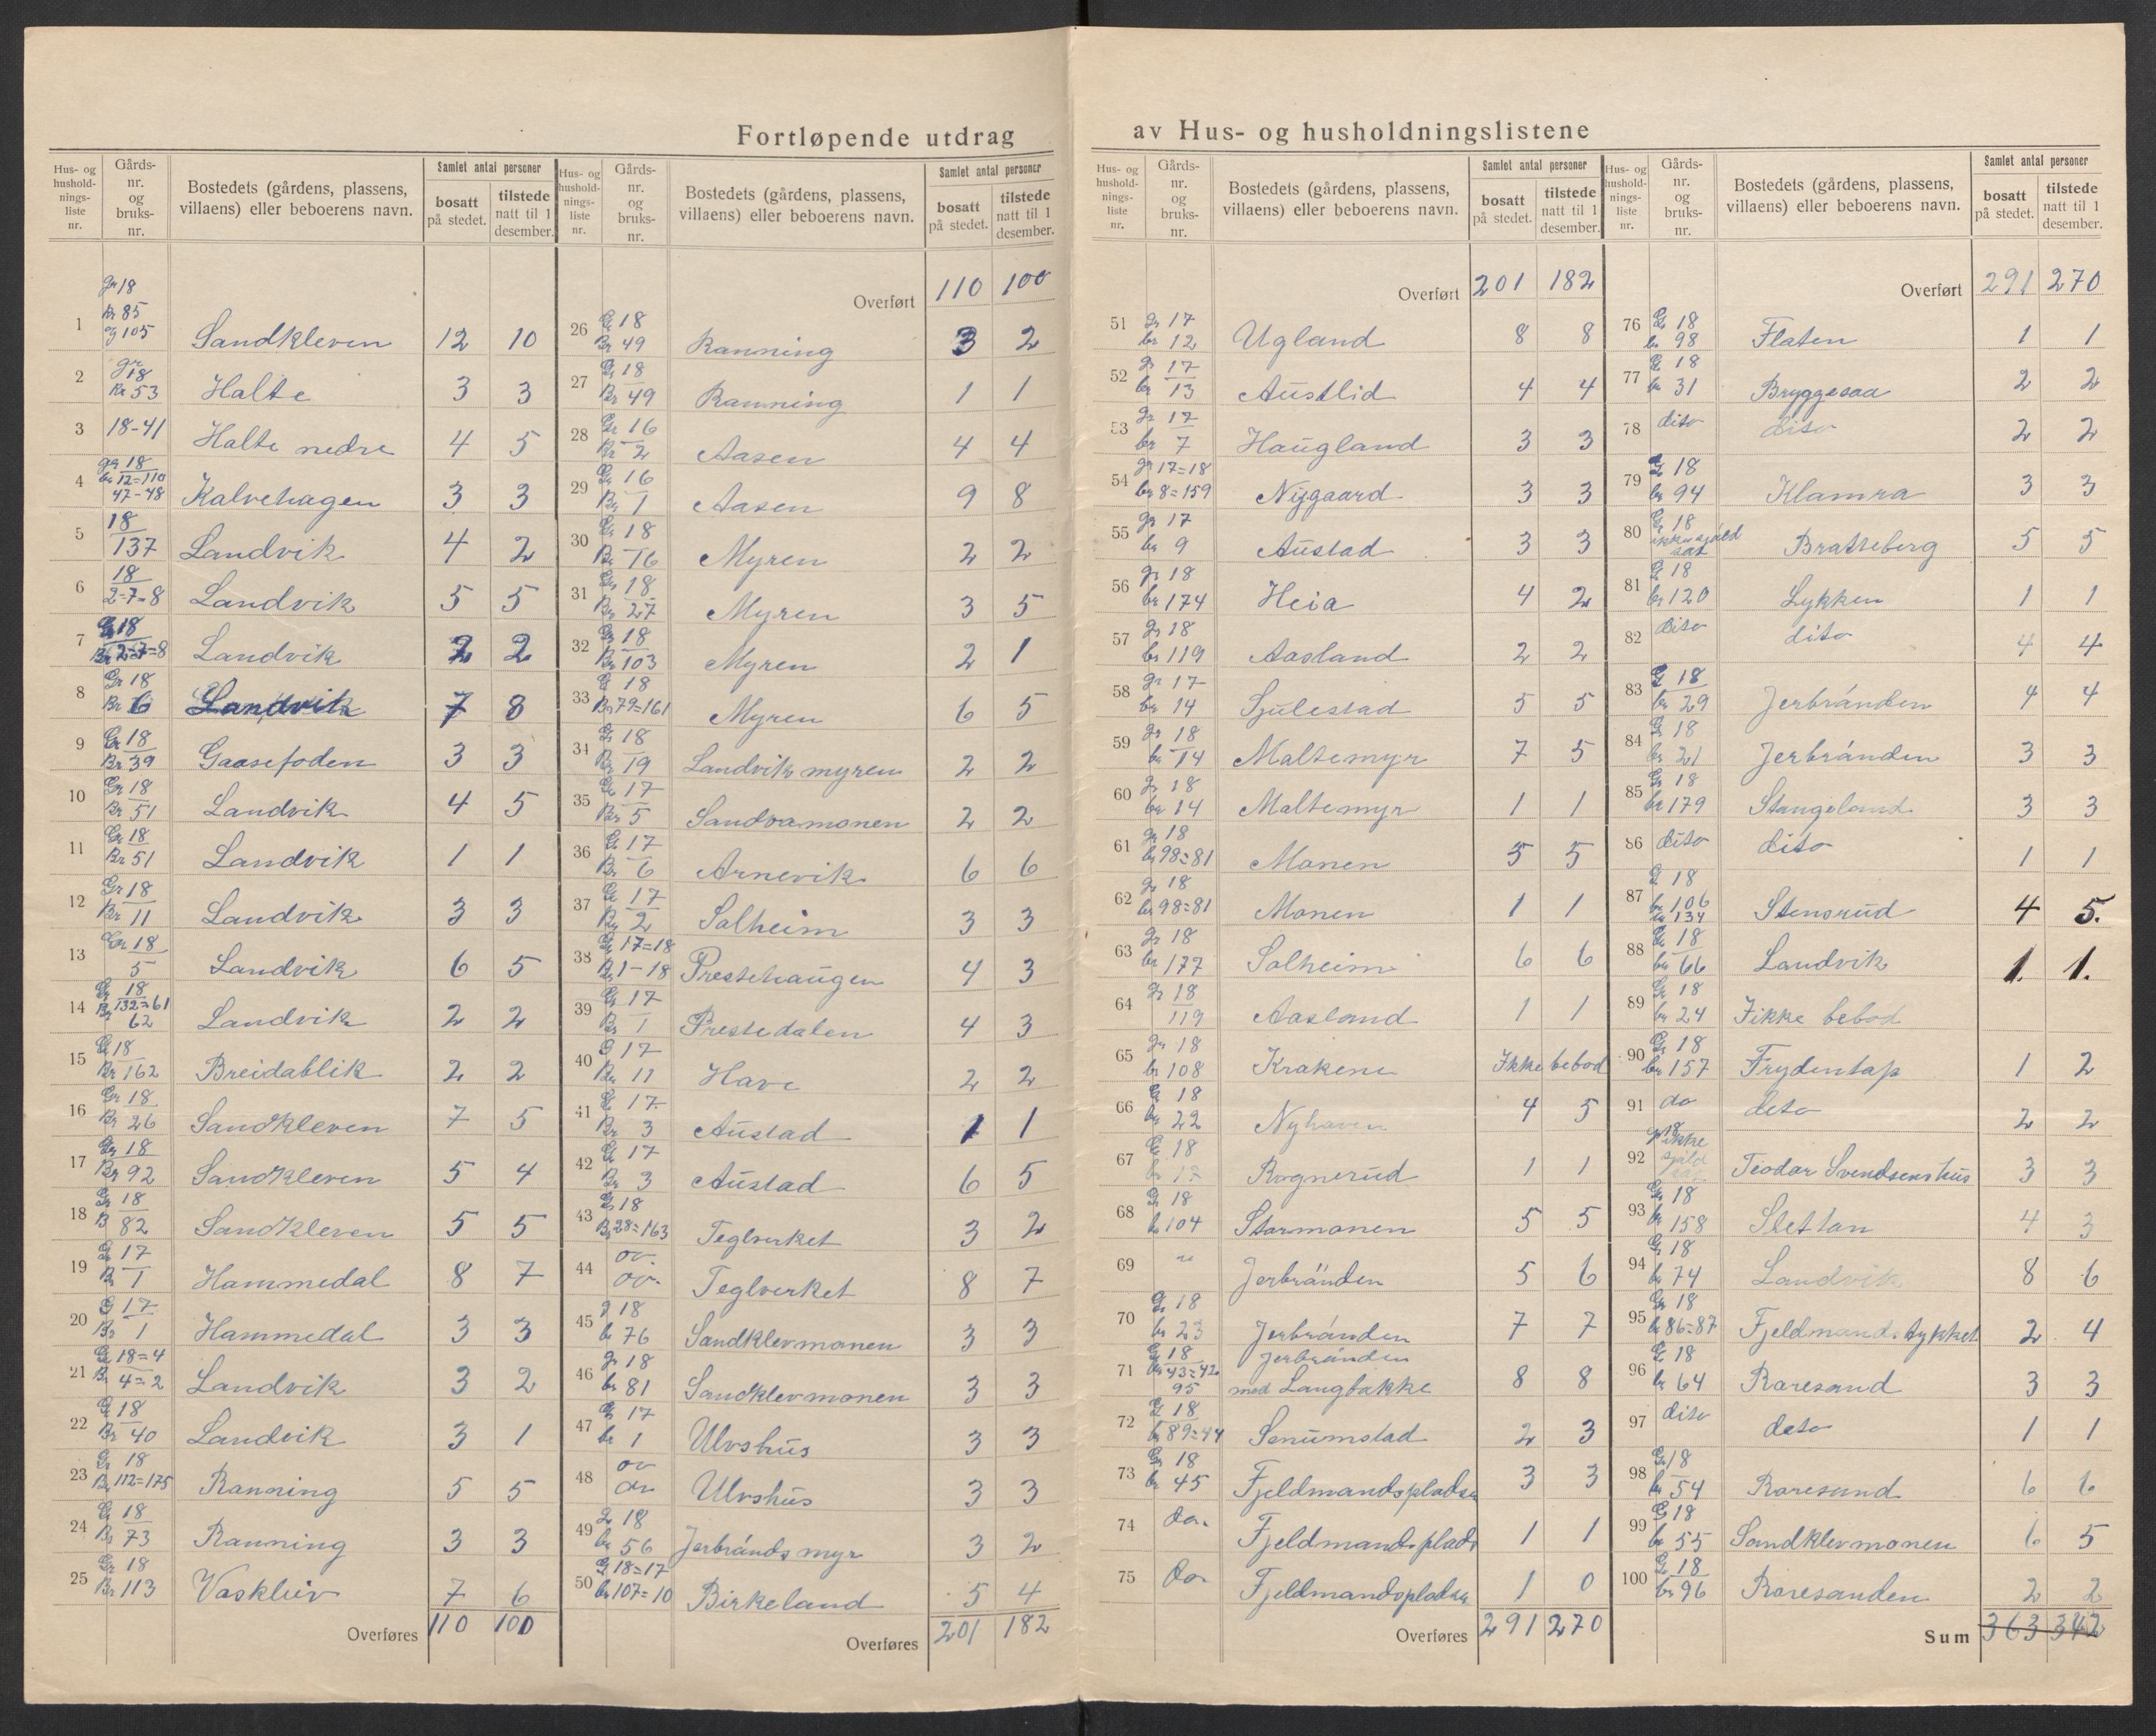 Fortløpende utdrag av Hus- og husholdningslistene
Hus- og husholdningsliste nr. | Gårds-nr. og bruks-nr. | Bostedets (gårdens, plassens, villaens) eller beboerens navn. | Samlet antal personer bosatt på stedet. | tilstede natt til 1 desember.
1 gr 18 Br 85 og 105 Sandkleven 12 10
2 gr 18 Br 53 Halte 3 3
3 18-41 Halte nedre 4 5
4 gr 18 br 12=110 47-48 Kalvehagen 3 3
5 18 137 Landvik 4 2
6 18 2-7-8 Landvik 5 5
7 Gr 18 Br 2=7=8 Landvik 2 2
8 Gr 18 Br 6 Landvik 7 8
9 Gr 18 Br 39 Gaasefoden 3 3
10 Gr 18 Br 51 Landvik 4 5
11 Gr 18 Br 51 Landvik 1 1
12 Gr 18 Br 11 Landvik 3 3
13 Gr 18 5 Landvik 6 5
14 Gr 18 Br 132=61 62 Landvik 2 2
15 Gr 18 Br 162 Breidablik 2 2
16 Gr 18 Br 26 Sandkleven 7 5
17 Gr 18 Br 92 Sandkleven 5 4
18 Gr 18 B 82 Sandkleven 5 5
19 G 17 Br 1 Hammedal 8 7
20 G 17 Br 1 Hammedal 3 3
21 Gr 18=4 Br 4=2 Landvik 3 2
22 G 18 Br 40 Landvik 3 1
23 Gr 18 Br 112=175 Ranning 5 5
24 Gr 18 Br 73 Ranning 3 3
25 Gr 18 Br 113 Vaskliiv 7 6
Overføres 110 100
Hus- og husholdningsliste nr. | Gårds-nr. og bruks-nr. | Bostedets (gårdens, plassens, villaens) eller beboerens navn. | Samlet antal personer bosatt på stedet. | tilstede natt til 1 desember.
Overført 110 100
26 Gr 18 Br 49 Ranning 3 2
27 Gr 18 Br 49 Ranning 1 1
28 Gr 16 Br 2 Aasen 4 4
29 Gr 16 Br 1 Aasen 9 8
30 Gr 18 Br 16 Myren 2 2
31 Gr 18 Br 27 Myren 3 5
32 Gr 18 Br 103 Myren 2 1
33 G 18 Br 79=161 Myren 6 5
34 Gr 18 Br 19 Landvik myren 2 2
35 Gr 17 Br 5 Sandvamonen 2 2
36 Gr 17 Br 6 Arnevik 6 6
37 Gr 17 Br 2 Solheim 3 3
38 Gr 17=18 Br 1-18 Prestehaugen 4 3
39 Gr 17 Br 1 Prestedalen 4 3
40 G 17 Br 11 Have 2 2
41 Gr 17 Br 3 Austad 1 1
42 Gr 17 Br 3 Austad 6 5
43 Gr 18 Br 28=163 Teglverket 3 2
44 do. do. Teglverket 8 7
45 g 18 br 76 Sandklevmonen 3 3
46 gr 18 br 81 Sandklevmonen 3 3
47 gr 17 br 1 Ulvshus 3 3
48 do do Ulvshus 3 3
49 gr 18 br 56 Jerbrånds myr 3 2
50 G 18=17 br 107=10 Birkeland 5 4
Overføres 201 182
Hus- og husholdningsliste nr. | Gårds-nr. og bruks-nr. | Bostedets (gårdens, plassens, villaens) eller beboerens navn. | Samlet antal personer bosatt på stedet. | tilstede natt til 1 desember.
Overført 201 182
51 gr 17 br 12 Ugland 8 8
52 gr 17 br 13 Austlid 4 4
53 gr 17 br 7 Haugland 3 3
54 gr 17=18 br 8=159 Nygaard 3 3
55 gr 17 br 9 Austad 3 3
56 gr 18 br 174 Heia 4 2
57 gr 18 br 119 Aasland 2 2
58 gr 17 br 14 Sjulestad 5 5
59 gr 18 br 14 Maltemyr 7 5
60 gr 18 br 14 Maltemyr 1 1
61 gr 18 br 98=81 Monen 5 5
62 gr 18 br 98=81 Monen 1 1
63 gr 18 br 177 Solheim 6 6
64 gr 18 119 Aasland 1 1
65 gr 18 br 108 Krakene Ikke bebod
66 Gr 18 br 22 Nyhaven 4 5
67 Gr 18 Rognerud 1 1
68 Gr 18 br 104 Stormonen 5 5
69 Jerbränden 5 6
70 Gr 18 br 23 Jerbränden 7 7
71 Gr 18 br 43=42 95 Jerbränden med Langbakke 8 8
72 G 18 br 89=44 Senumstad 2 3
73 Gr 18 br 45 Fjeldmandspladsen 3 3
74 do. Fjeldmandsplads 1 1
75 do. Fjeldmandspladsen 1 0
Overføres 291 270
Hus- og husholdningsliste nr. | Gårds-nr. og bruks-nr. | Bostedets (gårdens, plassens, villaens) eller beboerens navn. | Samlet antal personer bosatt på stedet. | tilstede natt til 1 desember.
Overført 291 270
76 Gr 18 br 98 Flaten 1 1
77 Gr 18 br 31 Bryggesaa 2 2
78 dito dito 2 2
79 G 18 br 94 Klamra 3 3
80 Gr 18 Bratteberg 5 5
81 G 18 br 120 Lykken 1 1
82 dito dito 4 4
83 G 18 br 29 Jerbränden 4 4
84 Gr 18 br 21 Jerbränden 3 3
85 Gr 18 br 179 Stangeland 3 3
86 dito dito 1 1
87 G 18 br 106 br 134 Stensrud 4 5.
88 Gr 18 br 66 Landvik 1. 1.
89 Gr 18 br 24 Ikke bebod
90 Gr 18 br 157 Frydentop 1 2
91 do deto 2 2
92 gr 18 ikke Teodor Svendsens hus 3 3
93 Gr 18 br 158 Slettan 4 3
94 Gr 18 br 74 Landvik 8 6
95 Gr 18 br 86=87 Fjeldmandstykket 2 4
96 Gr 18 br 64 Roresand 3 3
97 dito deto 1 1
98 Gr 18 br 54 Roresand 6 6
99 G 18 br 55 Sandklevmonen 6 5
100 Gr 18 br 96 Roresanden 2 2
Sum 363 342